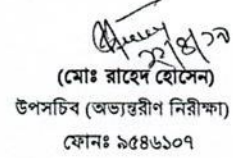 ২২/৪/১৯
(মোঃ রাহেদ হোসেন)
উপসচিব (অভ্যন্তরীণ নিরীক্ষা)
ফোনঃ ৯৫৪৬১০৭